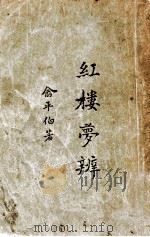 紅樓夢辨
俞平伯著
www.mtoou.info